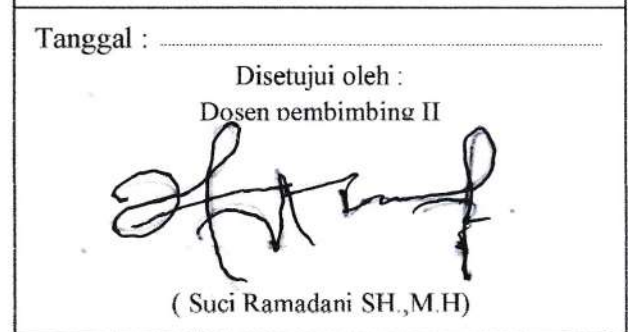 Tanggal : ........................................................................
Disetujui oleh :
Dosen pembimbing II
( Suci Ramadani SH.,M.H)